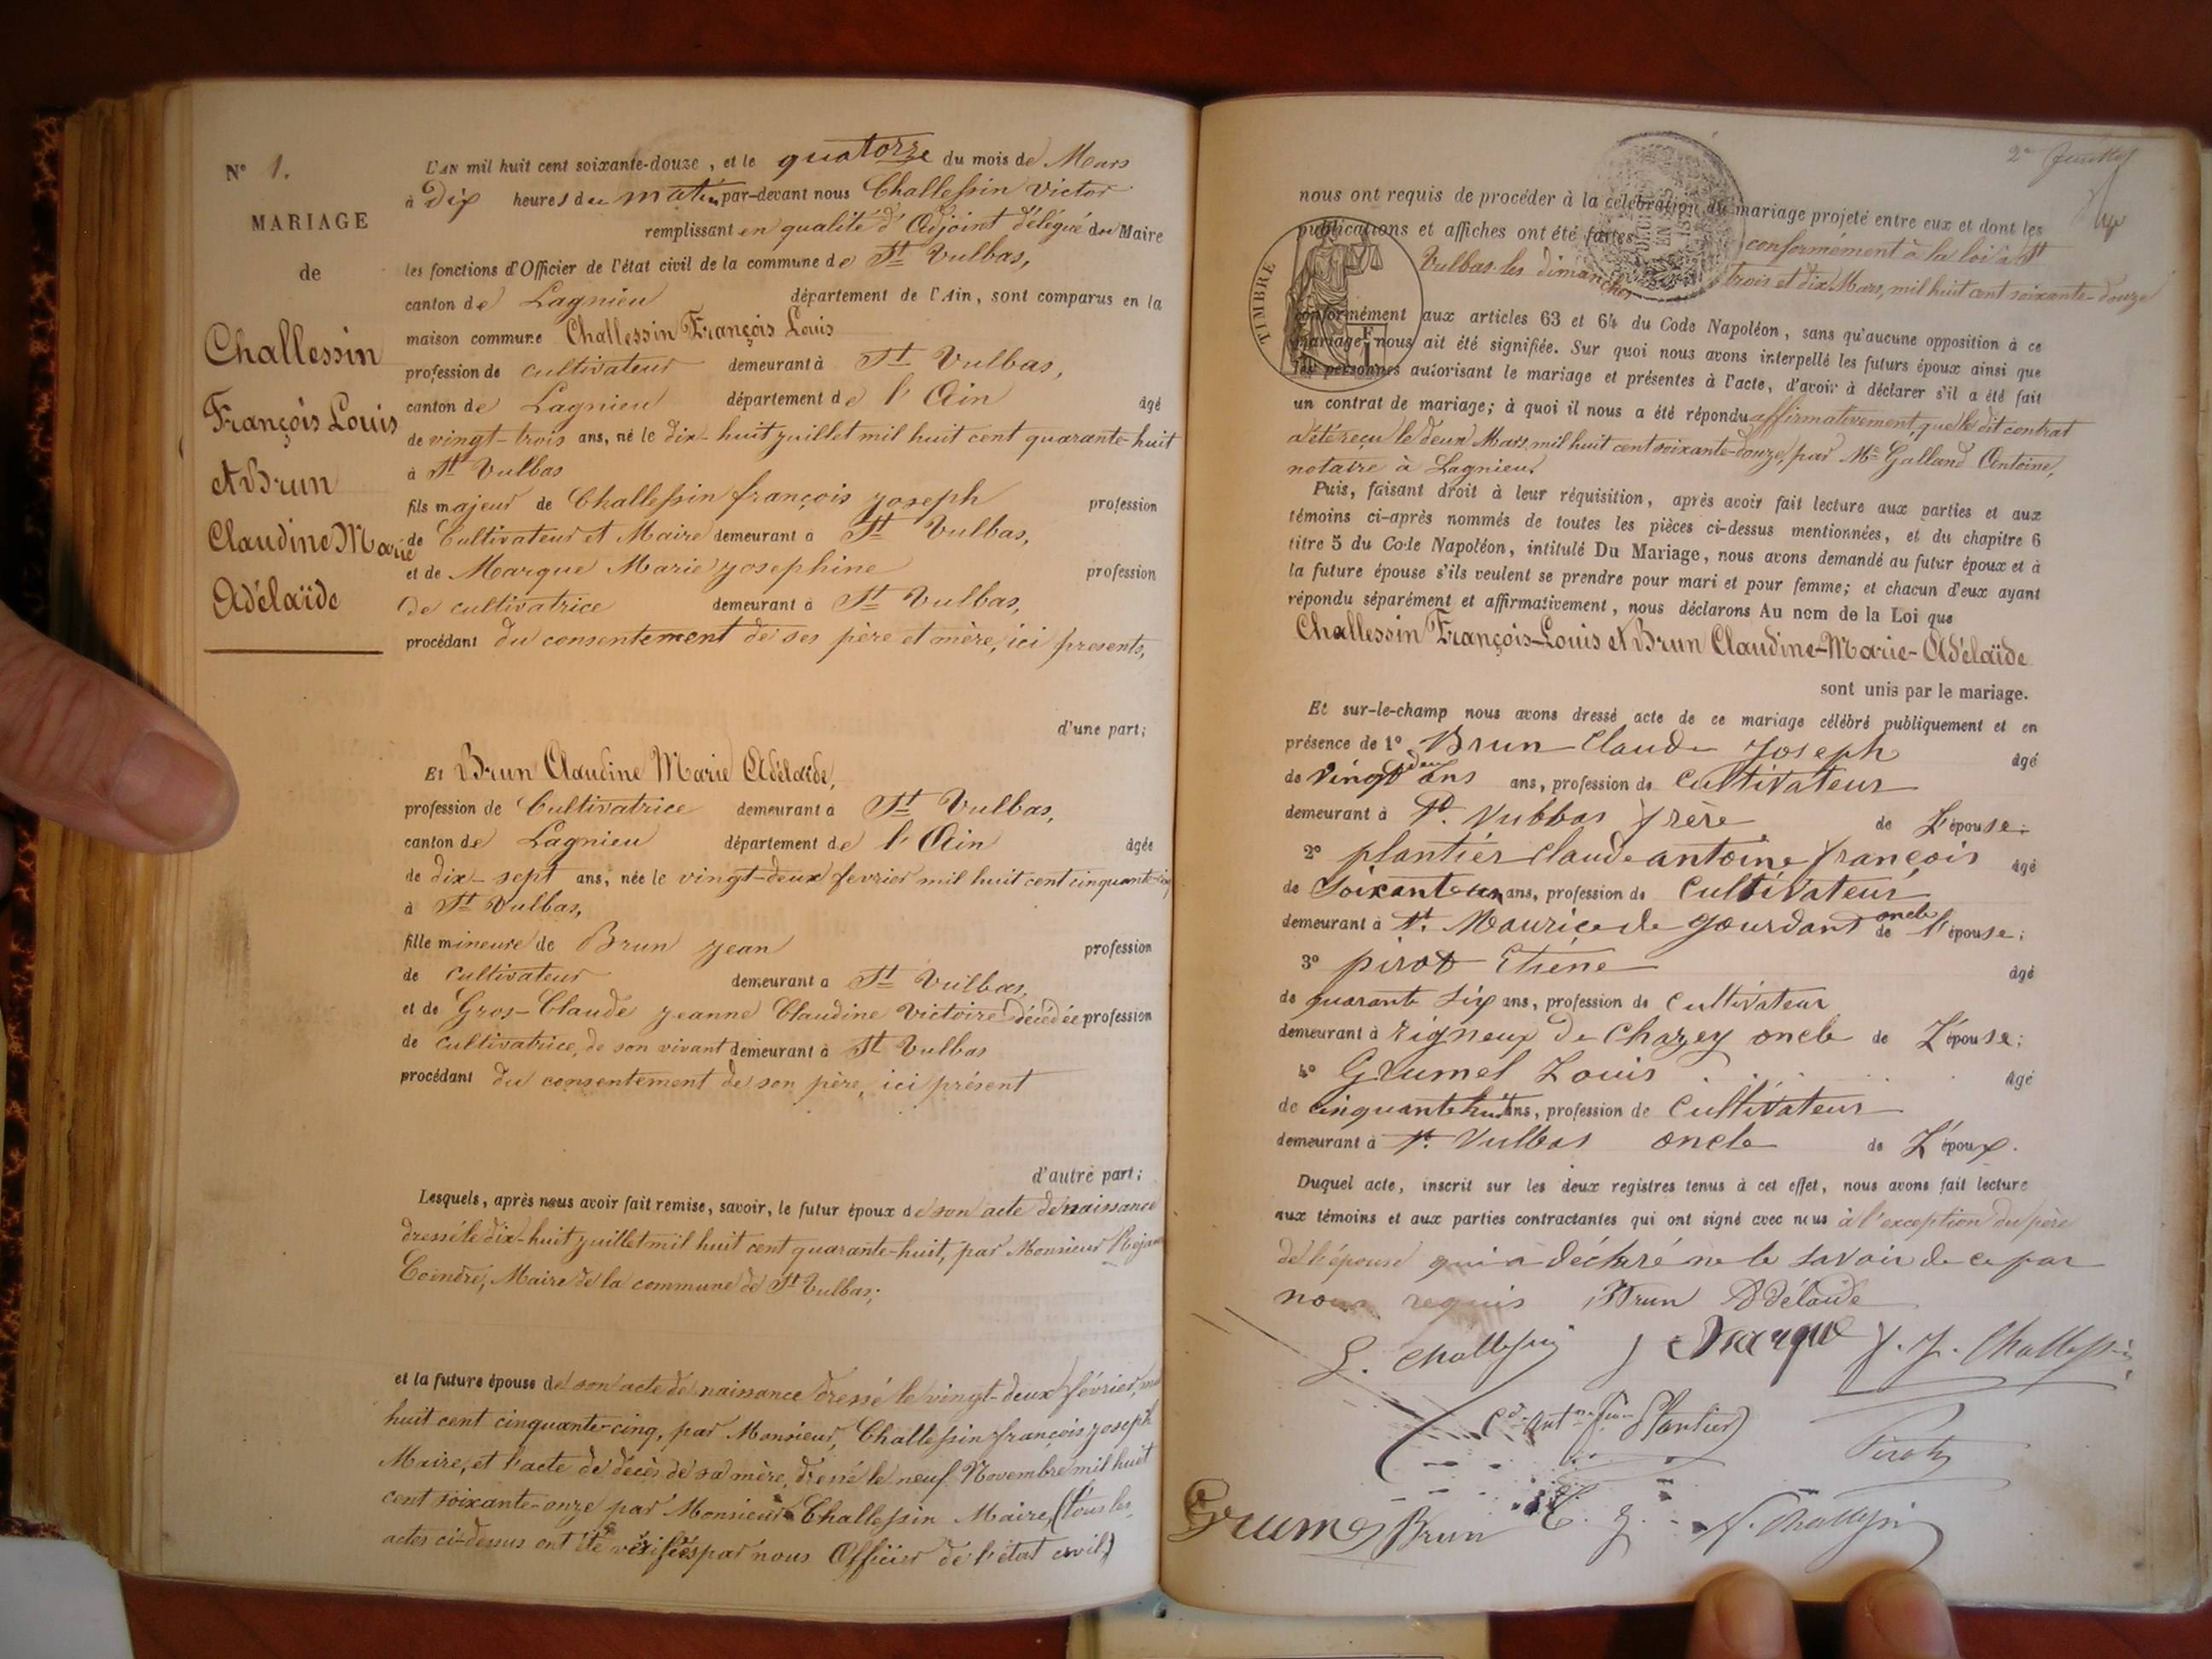 N° 1.
MARIAGE
de
Challessin
François Louis
et Brun
Claudine Marie
Adélaïde
L'AN mil huit cent soixante-douze, et le quatorze du mois de Mars
à Dix heures du matin par-devant nous Challessin Victor
remplissant en qualité d'Adjoint délégué du Maire
les fonctions d'Officier de l'état civil de la commune de St Vulbas,
canton de Lagnieu département de l'Ain, sont comparus en la
maison commune Challessin François Louis
profession de cultivateur demeurant à St Vulbas,
canton de Lagnieu département de l'Ain âgé
de vingt-trois ans, né le dix-huit juillet mil huit cent quarante-huit
à St Vulbas
fils majeur de Challessin françois joseph profession
de Cultivateur et Maire demeurant à St Vulbas,
et de Marque Marie josephine profession
de cultivatrice demeurant à St Vulbas,
procédant du consentement de ses père et mère, ici presents,
d'une part;
Et Brun Claudine Marie Adélaïde,
profession de Cultivatrice demeurant à St Vulbas,
canton de Lagnieu département de l'Ain âgée
de dix-sept ans, née le vingt-deux fevrier mil huit cent cinquante-cinq
à St Vulbas,
fille mineure de Brun jean profession
de cultivateur demeurant à St Vulbas,
et de Gros-Claude jeanne Claudine Victoire décédée profession
de cultivatrice, de son vivant demeurant à St Vulbas
procédant du consentement de son père, ici présent
d'autre part;
Lesquels, après nous avoir fait remise, savoir, le futur époux de son acte de naissance
dressé le dix-huit juillet mil huit cent quarante-huit, par Monsieur
Coindre, Maire de la commune de St Vulbas;
et la future épouse de son acte de naissance dressé le vingt-deux février, mil
huit cent cinquante-cinq, par Monsieur, Challessin françois joseph
Maire, et l'acte de décès de sa mère, dressé le neuf Novembre mil huit
cent soixante-onze par Monsieur Challessin Maire, (tous les
actes ci-dessus ont été vérifiés par nous Officier de l'état civil)
2e feuillet
nous ont requis de procéder à la célébration du mariage projeté entre eux et dont les
publications et affiches ont été faites conformément à la loi à St
Vulbas les dimanches trois et dix Mars, mil huit cent soixante-douze
TIMBRE
conformément aux articles 63 et 64 du Code Napoléon, sans qu'aucune opposition à ce
mariage nous ait été signifiée. Sur quoi nous avons interpellé les futurs époux ainsi que
les personnes autorisant le mariage et présentes à l'acte, d'avoir à déclarer s'il a été fait
un contrat de mariage; à quoi il nous a été répondu affirmativement, que le dit contrat
a été reçu le deux Mars, mil huit cent soixante-douze, par Me Galland Antoine,
notaire à Lagnieu.
Puis, faisant droit à leur réquisition, après avoir fait lecture aux parties et aux
témoins ci-après nommés de toutes les pièces ci-dessus mentionnées, et du chapitre 6
titre 5 du Code Napoléon, intitulé Du Mariage, nous avons demandé au futur époux et à
la future épouse s'ils veulent se prendre pour mari et pour femme; et chacun d'eux ayant
répondu séparément et affirmativement, nous déclarons Au nom de la Loi que
Challessin François-Louis et Brun Claudine-Marie-Adélaïde
sont unis par le mariage.
Et sur-le-champ nous avons dressé acte de ce mariage célébré publiquement et en
présence de 1° Brun Claude Joseph âgé
de vingt deux ans ans, profession de Cultivateur
demeurant à St. Vulbas frère de L'épouse;
2° plantier Claude antoine françois âgé
de Soixante un ans, profession de Cultivateur
demeurant à St. Maurice de gourdans oncle de l'épouse;
3° pirot Etiene âgé
de quarante six ans, profession de Cultivateur
demeurant à rigneux De Chazey oncle de L'épouse;
4° Grumel Louis âgé
de cinquante huit ans, profession de Cultivateur
demeurant à St. Vulbas oncle de L'époux.
Duquel acte, inscrit sur les deux registres tenus à cet effet, nous avons fait lecture
aux témoins et aux parties contractantes qui ont signé avec nous à l'exception du père
de l'épouse qui a déclaré ne le savoir de ce par
nous requis Brun Adélaïde
L. Challessin J Marque f. J. Challessin
Plantier
Pirot
Grumel Brun C. J. V. Challessin